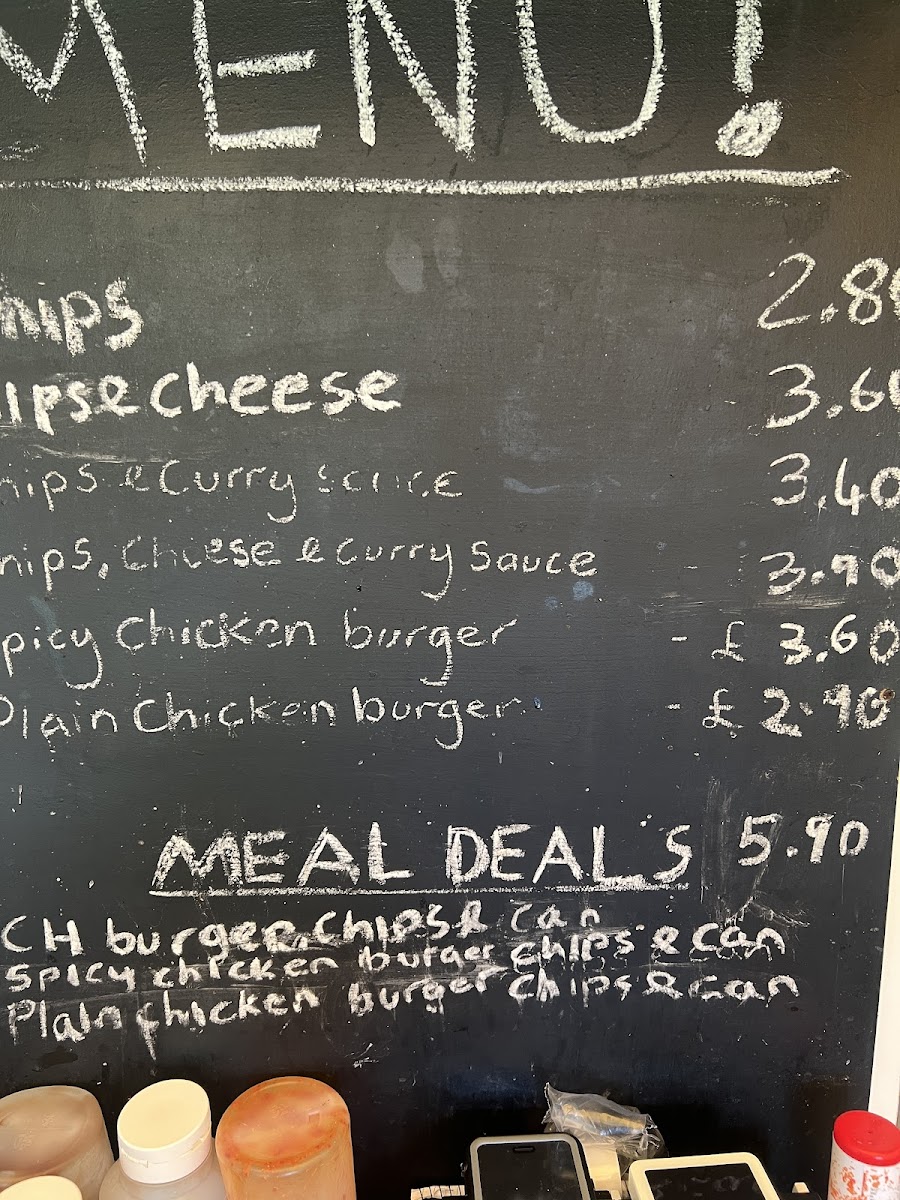 MENU!
hips 2.80
hips & cheese 3.60
hips & curry sauce 3.40
hips, cheese & curry sauce 3.90
picy chicken burger - £ 3.60
Plain chicken burger - £ 2.90
MEAL DEALS 5.90
CH burger, chips & can
spicy chicken burger chips & can
Plain chicken burger chips & can